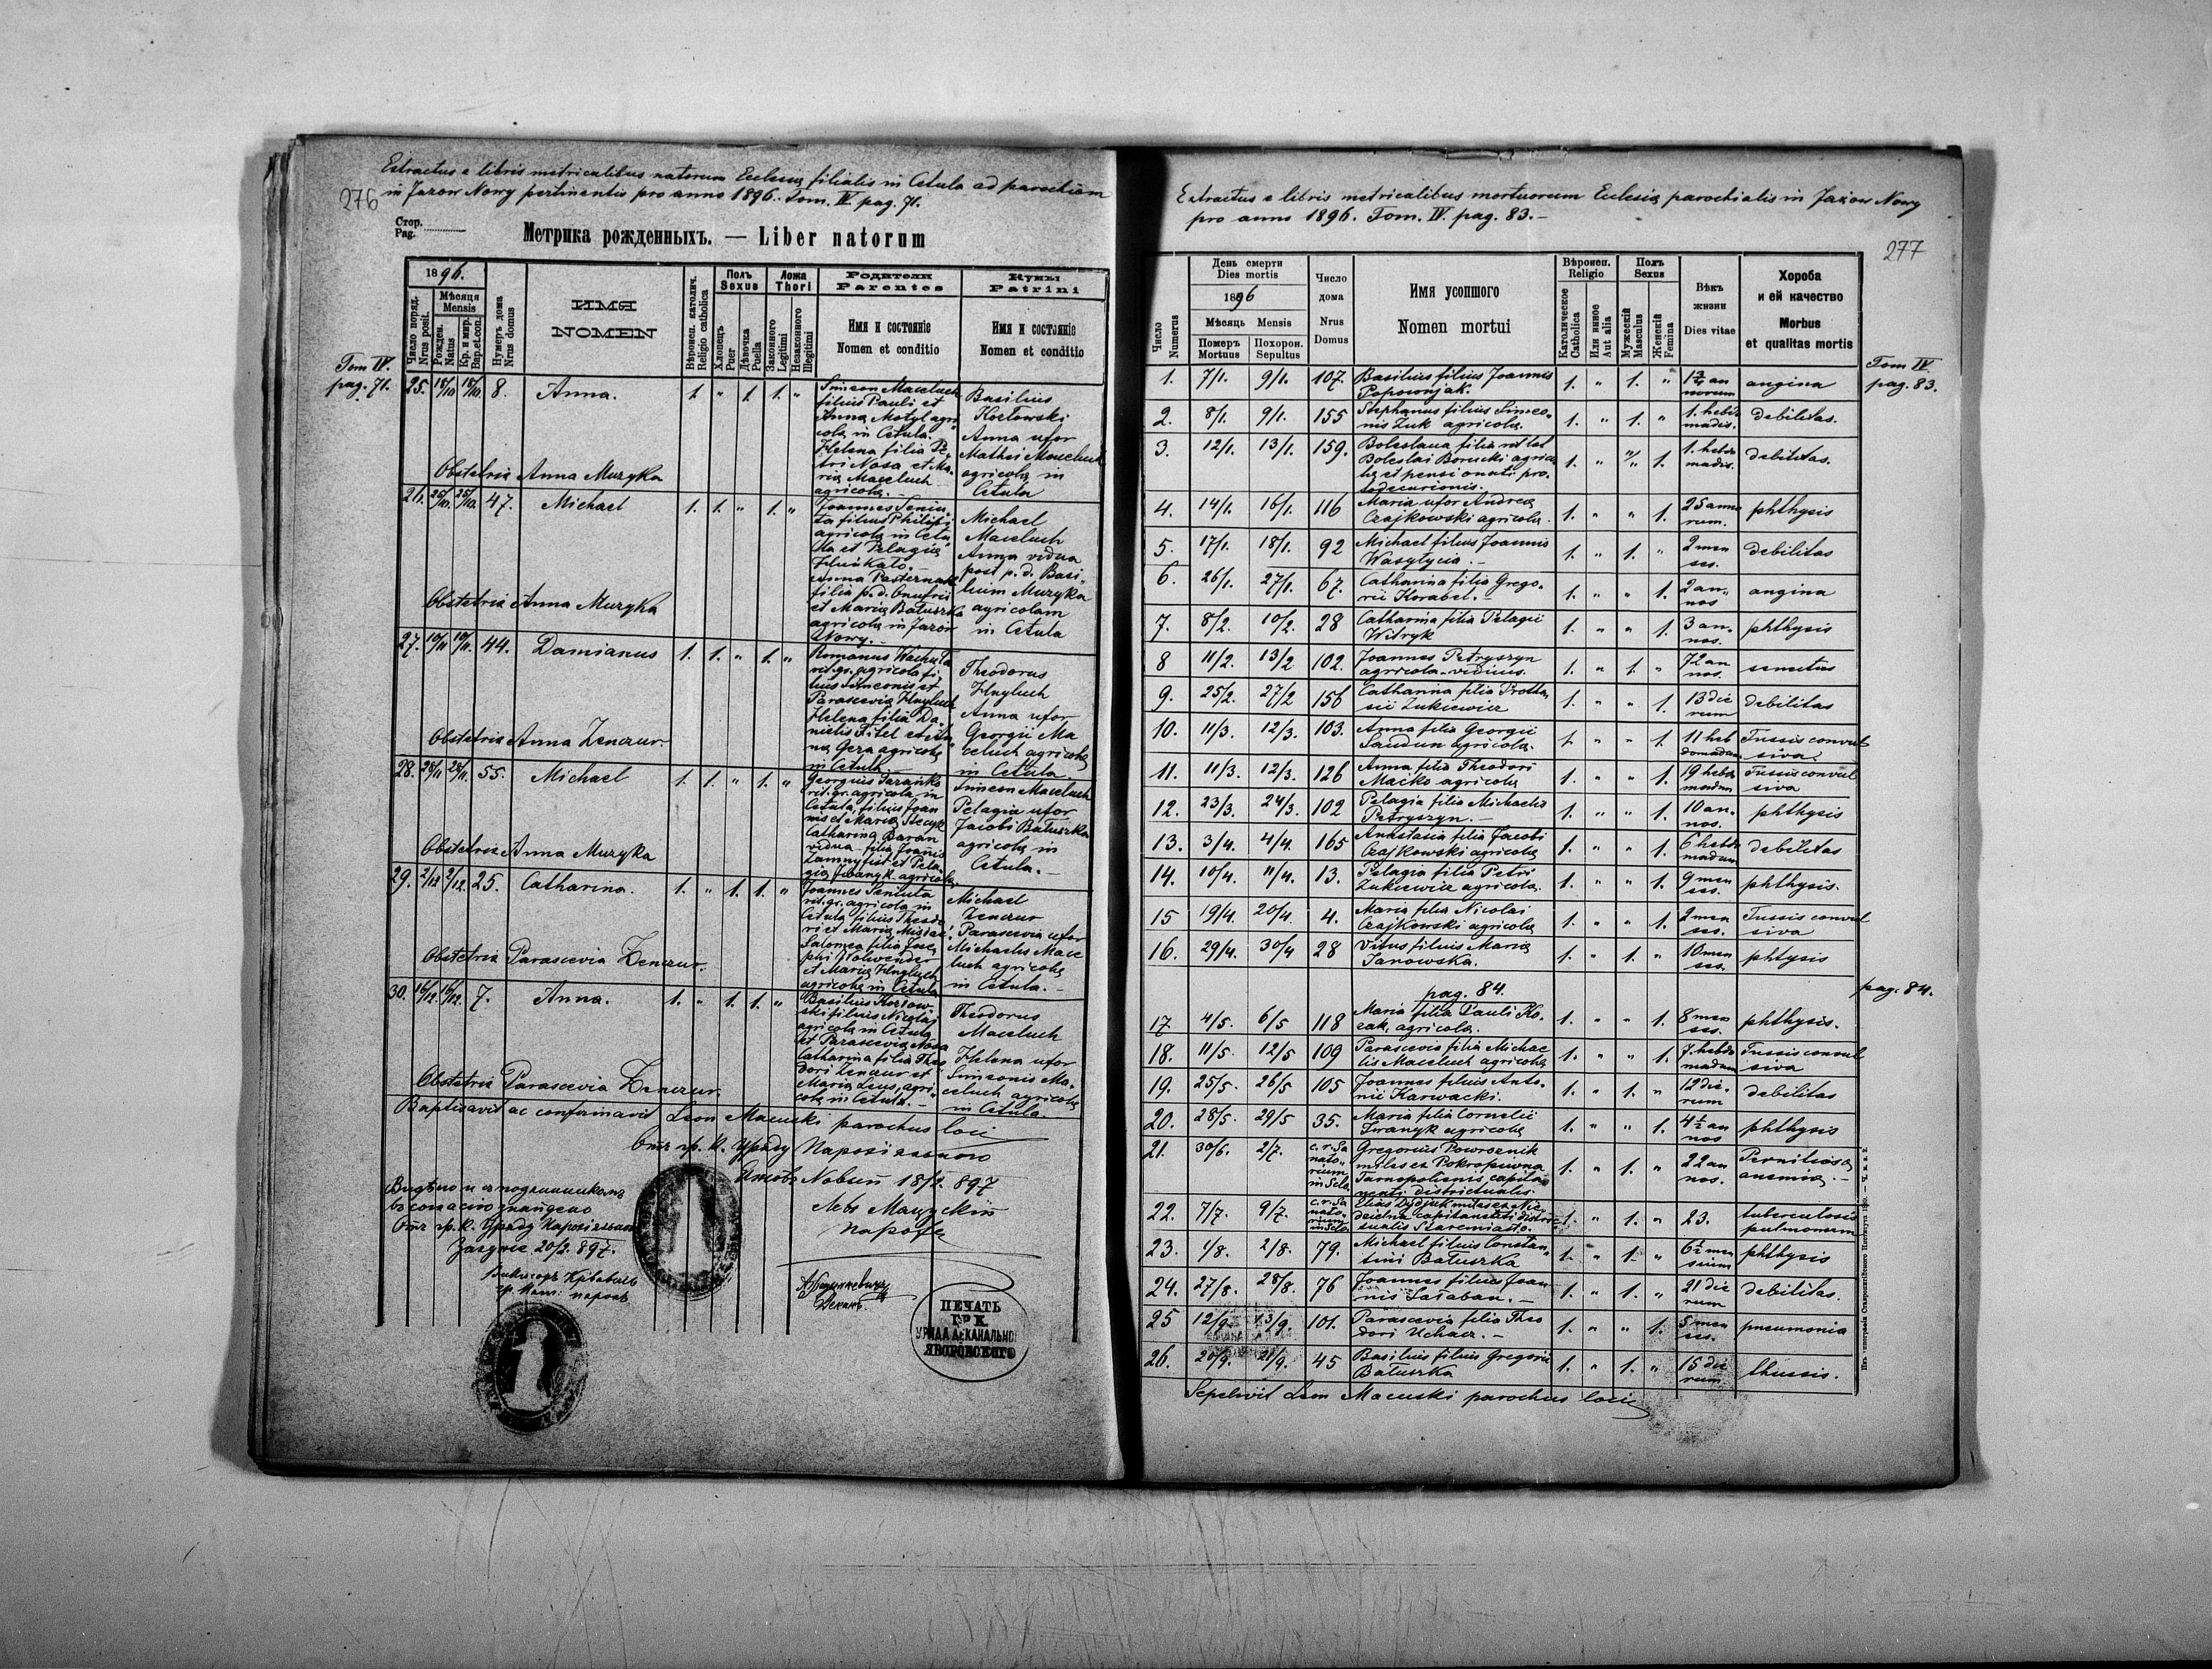 Extractus e libris metricalibus natorum Ecclesiæ filialis in Cetula ad parochiam
in Jazow Nowy pertinentis pro anno 1896. Tom. IV pag. 71.
276
Стор.
Pag.
Метрика рожденныхъ. — Liber natorum
1896.
Число поряд.
Nrus posit.
Мѣсяця
Mensis
Рожден.
Natus
Кр. и мир.
Bap.et.con.
Нумеръ дома
Nrus domus
ИМЯ
NOMEN
Вѣроисп. католич.
Religio catholica
Полъ
Sexus
Хлопецъ
Puer
Дѣвочка
Puella
Ложа
Thori
Законного
Legitimi
Незаконного
Illegitimi
Родители
Parentes
Имя и состояніе
Nomen et conditio
Кумы
Patrini
Имя и состояніе
Nomen et conditio
Tom IV.
pag. 71.
25. 8. Anna. 1. " 1. 1. "
Simeon Maceluch
filius Pauli et
Anna Motyl agri
colæ in Cetula.
Helena filia Pe
tri Nosa et Ma
riæ Maceluch
agricolæ.
Basilius
Kozłowski
Anna uxor
Mathei Maceluch
agricolæ in
Cetula
Obstetrix Anna Muzyka
26. 25/10. 25/10. 47. Michael 1. 1. " 1. "
Joannes Seniu
ta filius Philippi
agricola in Cetu
la et Pelagiæ
Anna Pasternak
filia p.d. Onufrii
et Mariæ Batuszka
agricolæ in Jazów
Nowy.
Michael
Maceluch
Anna vidua
post p. d. Basi
lium Muzyka
agricolam
in Cetula
Obstetrix Anna Muzyka
27. 10/11 10/11. 44. Damianus 1. 1. " 1. "
Romanus Wachula
rit. gr. agricola fi
lius Simeonis et
Parascevia Hnyluch
Helena filia Da
nielis Fitel et An
na Gera agricolæ
in Cetula
Theodorus
Hnyluch
Anna uxor
Georgii Ma
celuch agricolæ
in Cetula.
Obstetrix Anna Zenczur.
28. 28/11 28/11. 55. Michael 1. 1. " 1. "
Georgius Saranko
rit. gr. agricola in
Cetula, filius Joan
nis et Mariæ Stecyk
Catharina Baran
vidua filia Joanis
Simeon Maceluch
Pelagia uxor
Jacobi Batuszka
agricolæ in
Cetula.
Obstetrix Anna Muzyka
29. 2/12 2/12. 25. Catharina. 1. " 1. 1. "
Joannes Seniuta
rit. gr. agricola in
Cetula filius Theodo
ri et Mariæ
Salomea filia Jose
phi Wolwender
et Mariæ Hnyluch
agricolæ in Cetula
Michael
Zenczur
Parascevia uxor
Michaelis Mace
luch agricolæ
in Cetula.
Obstetrix Parascevia Zenczur.
30. 16/12. 16/12. 7. Anna. 1. " 1. 1. "
Basilius Kozłow
ski filius Nicolai
agricola in Cetula
et Parascevia Nosa
Catharina filia Theo
dori Zenczur et
Mariæ Leus, agri
colæ in Cetula.
Theodorus
Maceluch
Helena uxor
Simeonis Ma
celuch agricolæ
in Cetula
Obstetrix Parascevia Zenczur.
Baptisavit ac confirmavit Leon Macuski parochus loci
Отъ гр. к. Уряду Парохіяльного
Язовъ Новый 18/2. 897
Левъ Мацускій
парохъ
Отъ гр. к. Уряду Парохіяльного
20/2. 897.
ПЕЧАТЬ
ГР. К.
УРЯДА ДЕКАНАЛЬНО
ЯВОРОВСКОГО
Extractus e libris metricalibus mortuorum Ecclesiæ parochialis in Jazow Nowy
pro anno 1896. Tom. IV. pag. 83.-
277
Число
Numerus
День смерти
Dies mortis
1896
Мѣсяць Mensis
Померъ
Mortuus
Похорон.
Sepultus
Число
дома
Nrus
Domus
Имя усопшого
Nomen mortui
Вѣроисп.
Religio
Католическое
Catholica
Или инное
Aut alia
Полъ
Sexus
Мужескій
Masculus
Женскій
Femina
Вѣкъ
жизни
Dies vitae
Хороба
и ей качество
Morbus
et qualitas mortis
Tom IV
pag. 83.
1. 7/1. 9/1. 107. Basilius filius Joannis
Popownjak. 1. " 1. " angina
2. 8/1. 9/1. 155 Stephanus filius Simeo-
nis Zuk agricolæ. 1. " 1. " 1. hebdo
madis. debilitas.
3. 12/1. 13/1. 159. Boleslava filia
Boleslai Borucki agrico
læ et pensionati 1. " 1. 1. hebdo
madis. debilitas.
4. 14/1. 16/1. 116 Maria uxor Andreæ
Czajkowski agricolæ. 1. " " 1. 25 anno
rum. phthysis
5. 17/1. 18/1. 92 Michael filius Joannis
Wasylycia. 1. " 1. " 2 men
ses. debilitas
6. 26/1. 27/1. 67. Catharina filia Grego-
rii Korabel. 1. " " 1. 2 an-
nos angina
7. 8/2. 10/2. 28 Catharina filia Pelagii
Witryk 1. " " 1. 3 an-
nos. phthysis
8 11/2. 13/2 102. Joannes Petryszyn
agricola viduus. 1. " 1. " 72 an
nos. senectus
9. 25/2. 27/2 156 Catharina filia Protha
sii Zukiewicz 1. " " 1. 13 die
rum debilitas
10. 11/3. 12/3. 103. Anna filia Georgii
Saudun agricolæ. 1. " " 1. 11 heb
domadum Tussis convul
siva.
11. 11/3. 12/3. 126 Anna filia Theodori
Maćko agricolæ 1. " " 1. 19 hebdo
madum Tussis convul
siva
12. 23/3. 24/3. 102 Pelagia filia Michaelis
Petryszyn. 1. " " 1. 10 an-
nos. phthysis
13. 3/4. 4/4. 165 Anastasia filia Jacobi
Czajkowski agricolæ 1. " " 1. 6 hebdo
madum debilitas
14. 10/4. 11/4. 13. Pelagia filia Petri
Zukiewicz agricolæ. 1. " " 1. 9 men
ses. phthysis.
15 19/4. 20/4. 4. Maria filia Nicolai
Czajkowski agricolæ 1. " " 1. 2 men
ses. Tussis convul
siva
16. 29/4. 30/4 28 Vitus filius Mariæ
Janowska. 1. " 1. " 10 men
ses. phtysis
pag. 84.
pag. 84.
17 4/5. 6/5 118 Maria filia Pauli Ko-
zak, agricolæ. 1. " " 1. 8 men
ses. phthysis.
18. 11/5. 12/5 109 Parascevia filia Michae
lis Maceluch agricolæ 1. " " 1. 7. hebdo
madum Tussis convul
siva
19. 25/5. 26/5 105 Joannes filius Anto-
nii Karwacki. 1. " 1. " 12 die-
rum debilitas
20. 28/5. 29/5 35. Maria filia Cornelii
Iwanyk agricolæ 1. " " 1. 4½ an
nos phthysis
21. 30/6. 2/7. c. r. Sa
nato-
rium
in Sclo Gregorius Poworznik
miles ex Pokropiwna
Tarnopoliensis capita
neati districtualis. 1. " 1. " 22 an
nos. Pernitiosa
anemia.
22. 7/7. 9/7. c. r. Sa
nato-
rium
in Sclo Elias Dydjuk miles ex
capitaneati distric
tualis Staremiasto. 1. " 1. " 23. tuberculosis
pulmonum
23. 1/8. 2/8. 79. Michael filius Constan
tini Batuszka 1. " 1. " 6½ men
sium phthysis
24. 27/8. 28/8. 76 Joannes filius Joan
nis Šałaban. 1. " 1. " 21 die
rum debilitas.
25 12/9. 13/9. 101. Parascevia filia Theo
dori Uchacz. 1. " " 1. 5 men
ses. pneumonia
26. 20/9. 21/9. 45 Basilius filius Gregorii
Batuszka 1. " 1. " 15 die
rum thussis.
Sepelivit Leon Macuski parochus loci